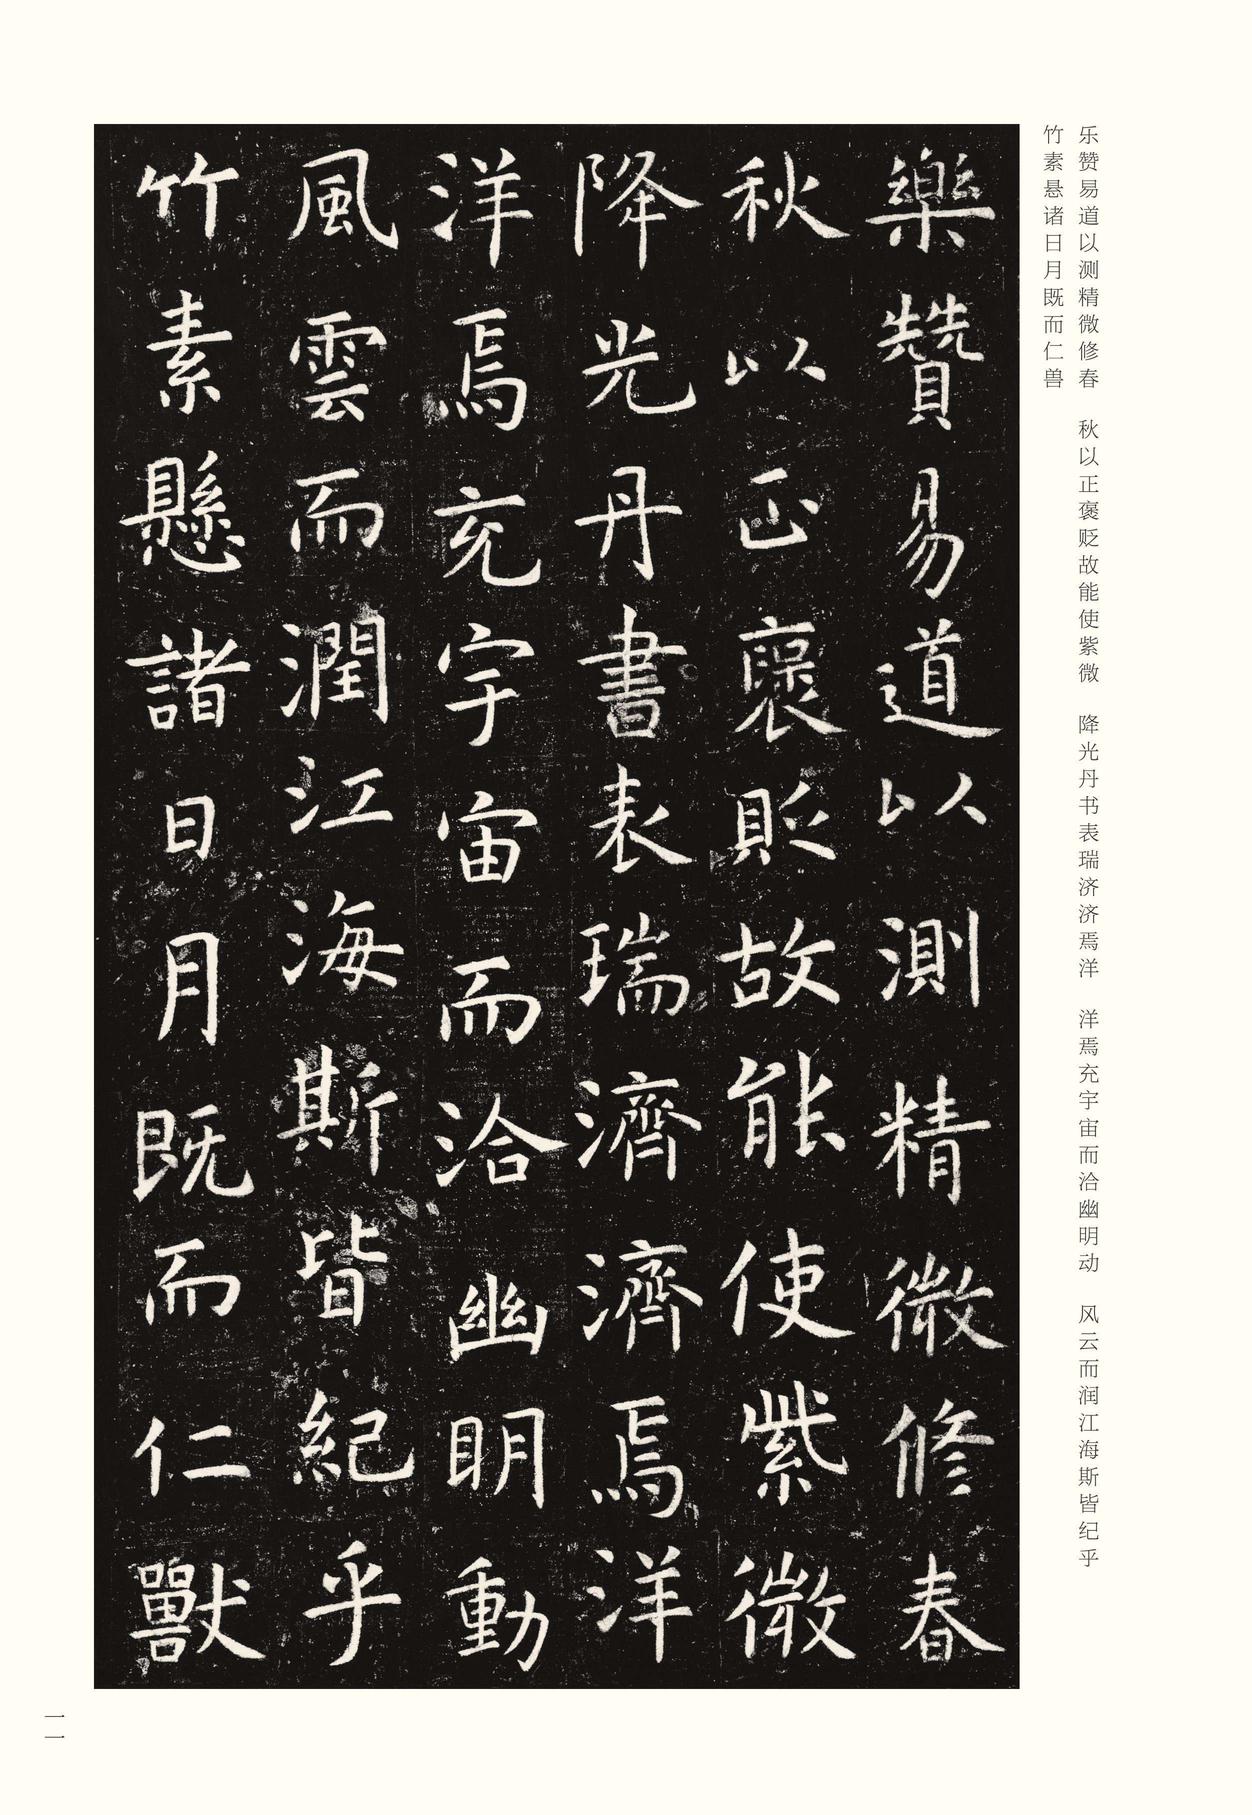 乐赞易道以测精微修春　秋以正褒贬故能使紫微　降光丹书表瑞济济焉洋　洋焉充宇宙而洽幽明动　风云而润江海斯皆纪乎
竹素悬诸日月既而仁兽
樂贊易道以測精微修春
秋以正襃貶故能使紫微
降光丹書表瑞濟濟焉洋
洋焉充宇宙而洽幽明動
風雲而潤江海斯皆紀乎
竹素懸諸日月既而仁獸
一一